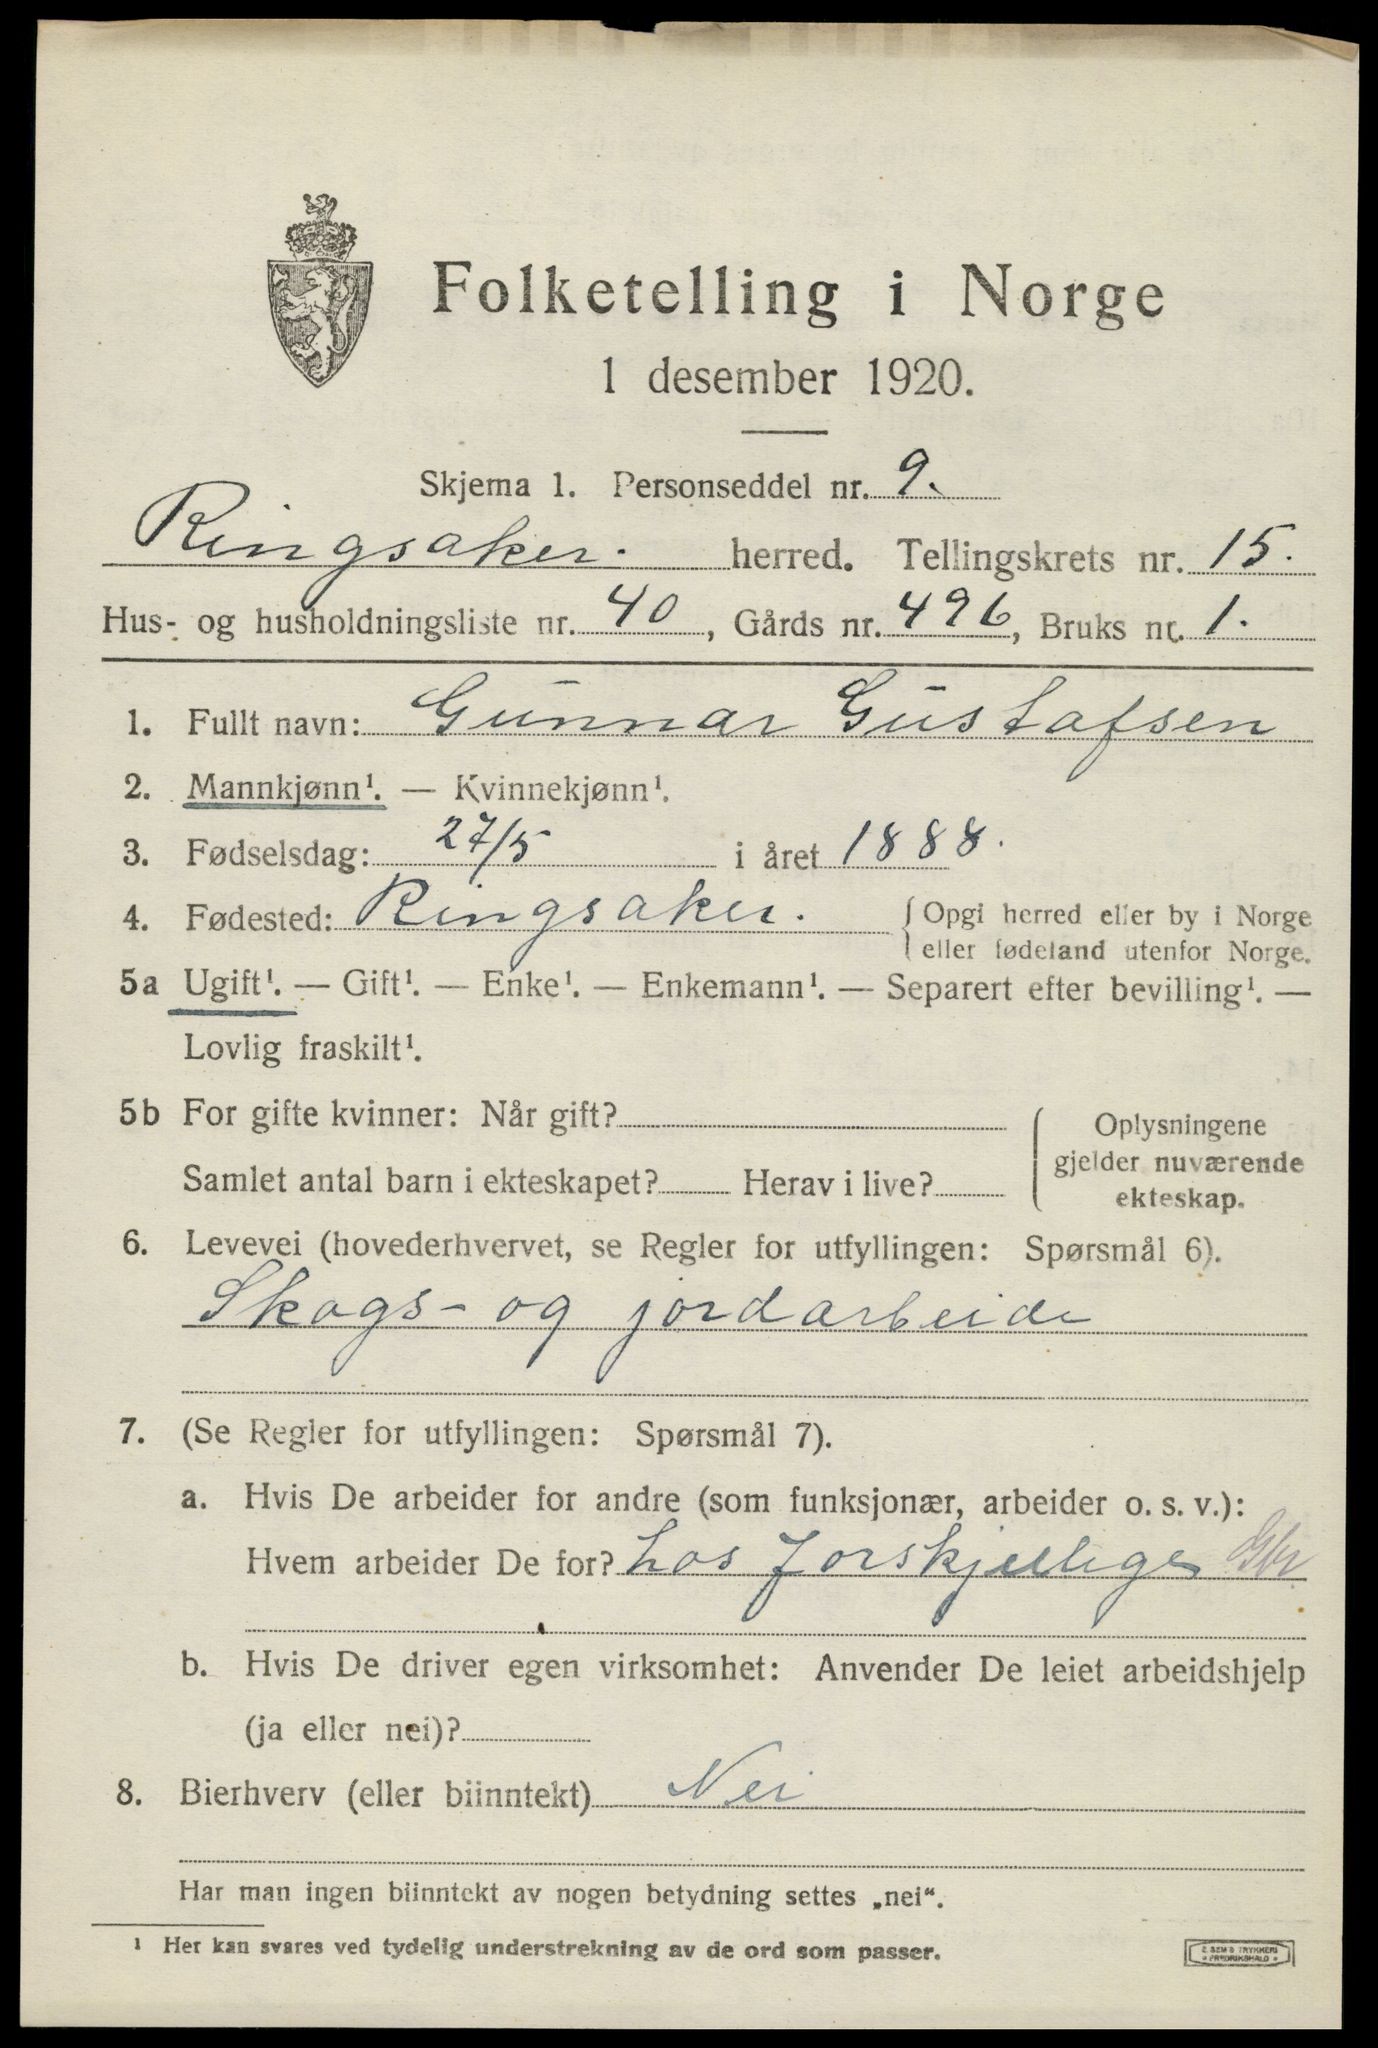 Folketelling i Norge
1 desember 1920.
Skjema 1. Personseddel nr. 9.
Ringsaker. herred. Tellingskrets nr. 15.
Hus- og husholdningsliste nr. 40, Gårds nr. 496, Bruks nr. 1.
1. Fullt navn: Gunnar Gustafsen
2. Mannkjønn¹. — Kvinnekjønn¹.
3. Fødselsdag: 27/5 i året 1888.
4. Fødested: Ringsaker. { Opgi herred eller by i Norge
eller fødeland utenfor Norge.
5a Ugift¹. — Gift¹. — Enke¹. — Enkemann¹. — Separert efter bevilling¹. —
Lovlig fraskilt¹.
5b For gifte kvinner: Når gift?
Samlet antal barn i ekteskapet? Herav i live?
Oplysningene
gjelder nuværende
ekteskap.
6. Levevei (hovederhvervet, se Regler for utfyllingen: Spørsmål 6).
Skogs- og jordarbeide
7. (Se Regler for utfyllingen: Spørsmål 7).
a. Hvis De arbeider for andre (som funksjonær, arbeider o. s. v.):
Hvem arbeider De for? hos forskjellige Gbr
b. Hvis De driver egen virksomhet: Anvender De leiet arbeidshjelp
(ja eller nei)?
8. Bierhverv (eller biinntekt) Nei
Har man ingen biinntekt av nogen betydning settes „nei“.
¹ Her kan svares ved tydelig understrekning av de ord som passer.
E. SEM'S TRYKKERI
FREDRIKSHALD